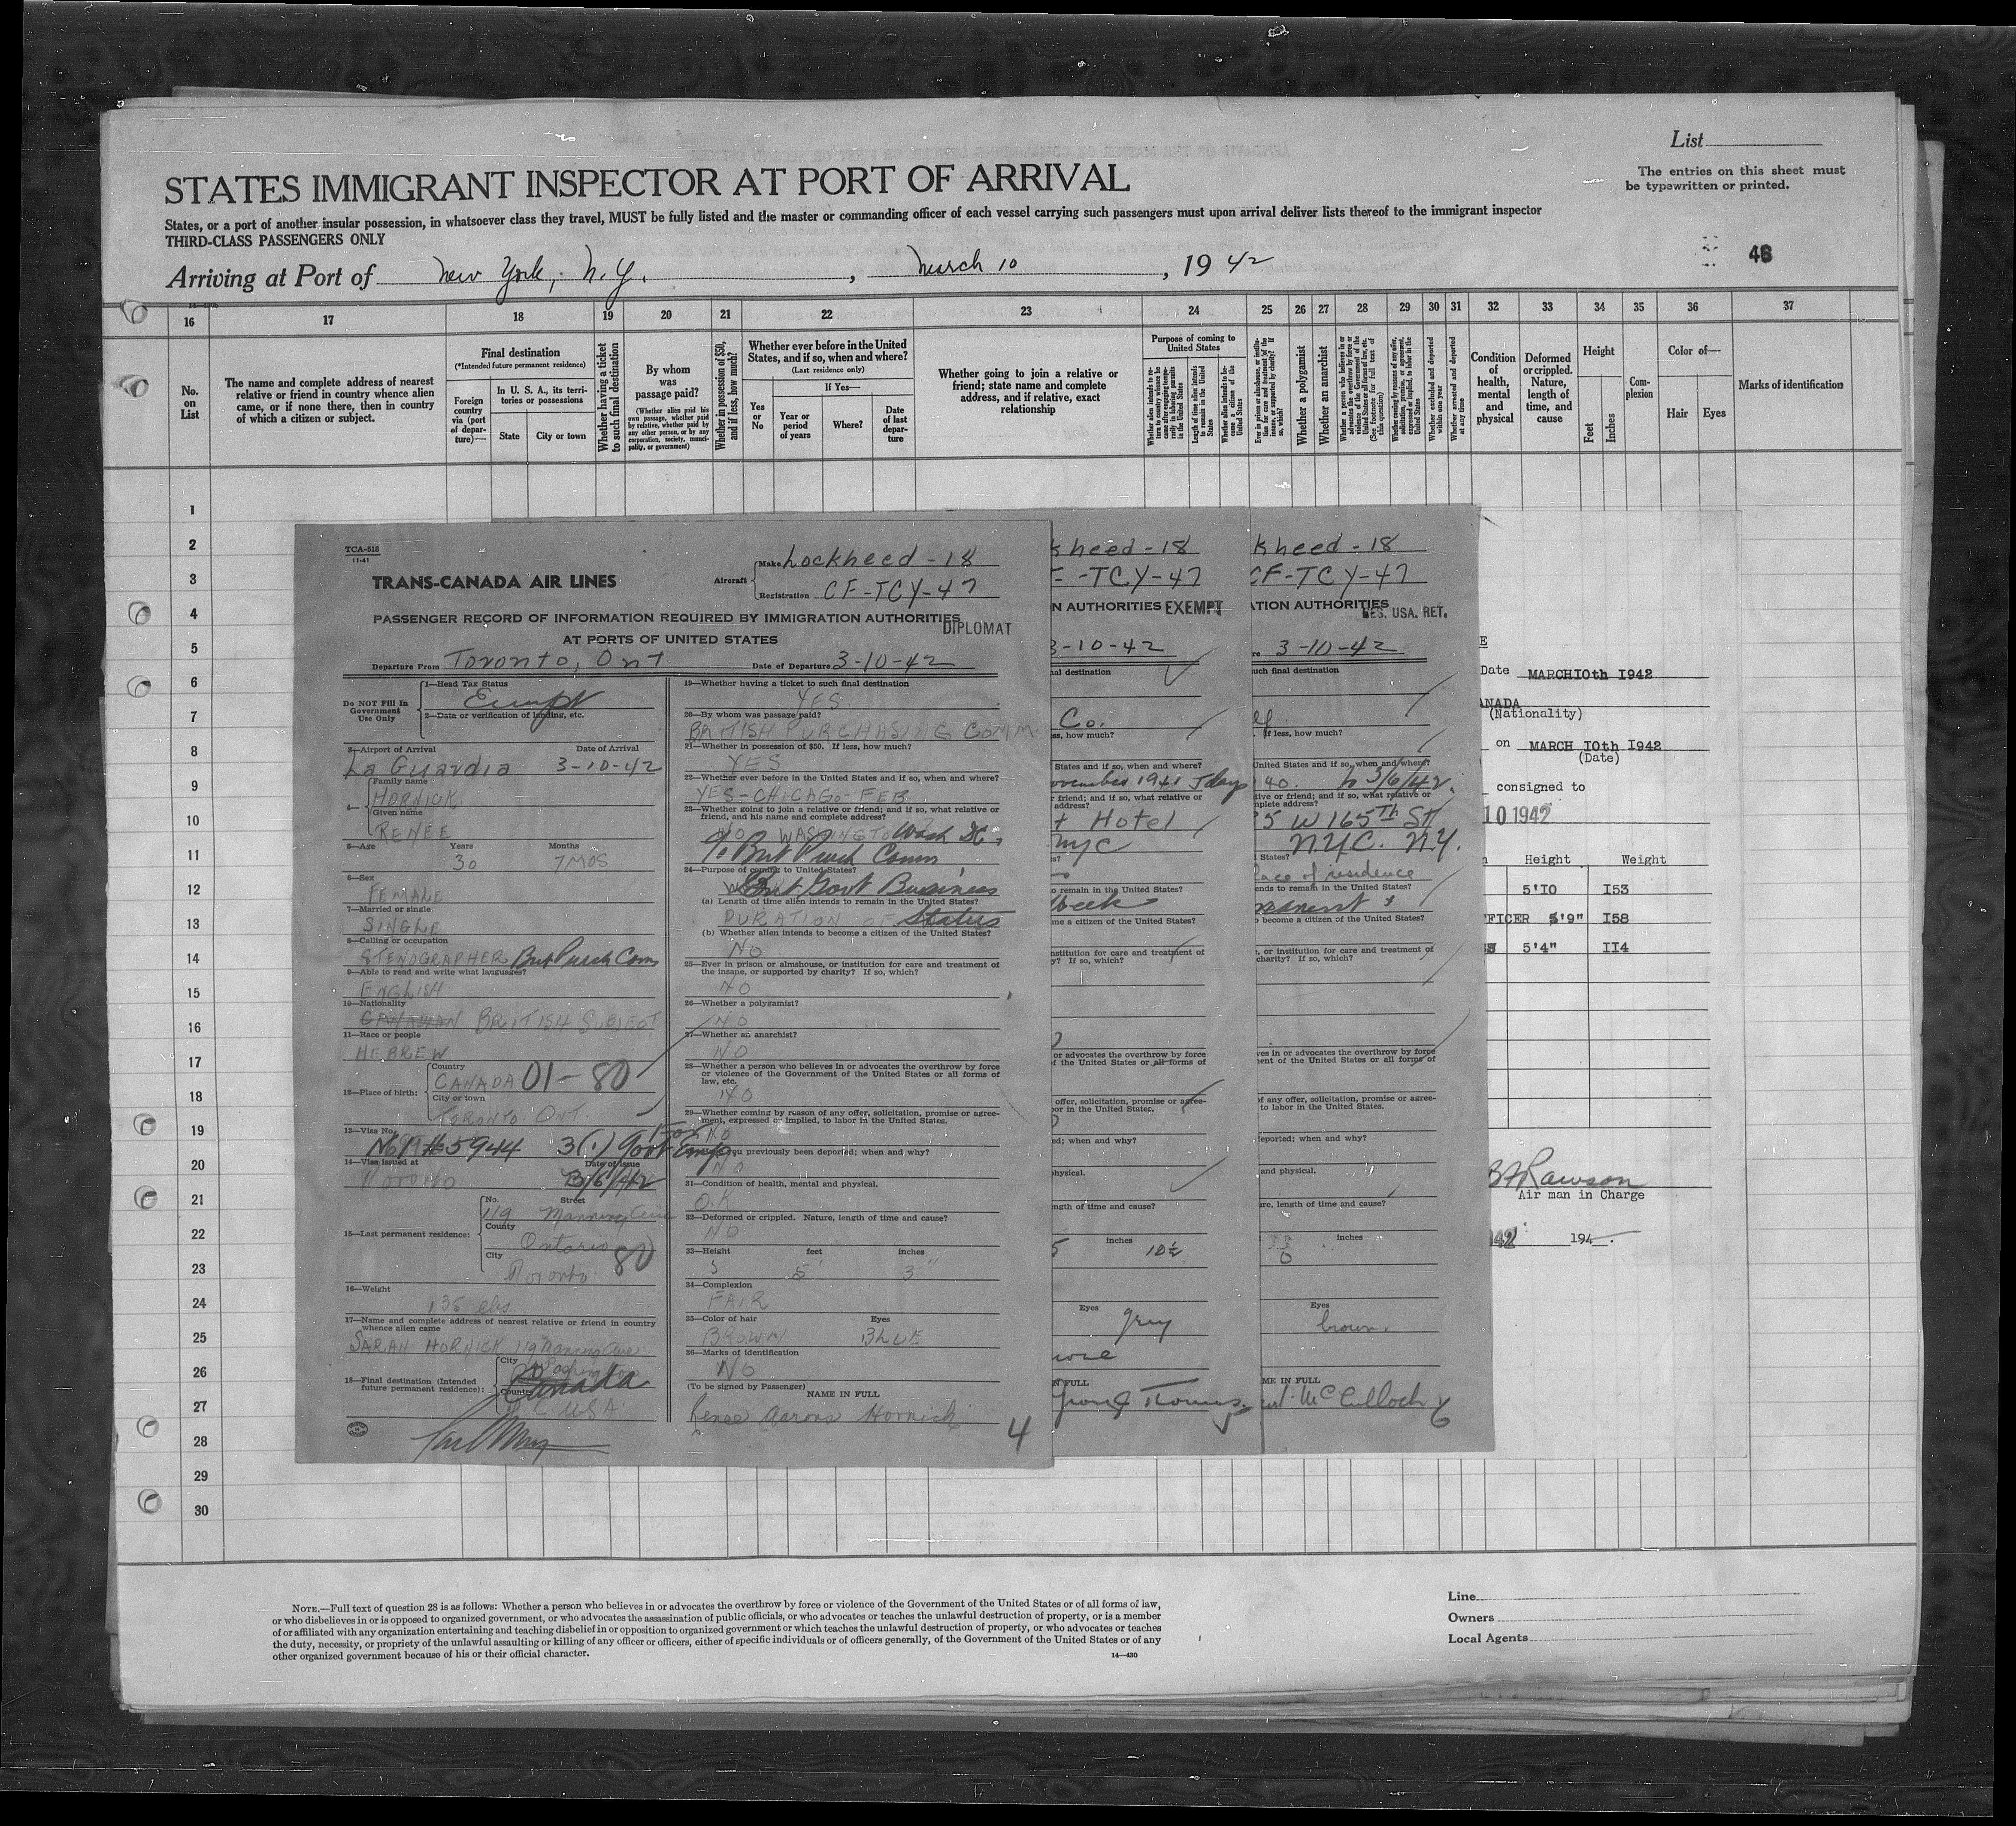 List
The entries on this sheet must
be typewritten or printed.
STATES IMMIGRANT INSPECTOR AT PORT OF ARRIVAL
States, or a port of another insular possession, in whatsoever class they travel, MUST be fully listed and the master or commanding officer of each vessel carrying such passengers must upon arrival deliver lists thereof to the immigrant inspector
THIRD-CLASS PASSENGERS ONLY
46
Arriving at Port of New York, N.Y., March 10, 1942
16 17 18 19 20 21 22 23 24 25 26 27 28 29 30 31 32 33 34 35 36 37
No. on List
The name and complete address of nearest
relative or friend in country whence alien
came, or if none there, then in country
of which a citizen or subject.
Final destination
(*Intended future permanent residence)
Foreign country via (port of departure)—
In U. S. A., its territories or possessions
State
City or town
Whether having a ticket to such final destination
By whom was passage paid?
(Whether alien paid his own passage, whether paid by relative, whether paid by any other person, or by any corporation, society, municipality, or government)
Whether in possession of $50, and if less, how much?
Whether ever before in the United States, and if so, when and where?
(Last residence only)
Yes or No
If Yes—
Year or period of years
Where?
Date of last departure
Whether going to join a relative or
friend; state name and complete
address, and if relative, exact
relationship
Purpose of coming to United States
Whether a polygamist
Whether an anarchist
Condition of health, mental and physical
Deformed or crippled. Nature, length of time, and cause
Height
Feet
Inches
Complexion
Color of—
Hair
Eyes
Marks of identification
1
2
3
4
5
6
7
8
9
10
11
12
13
14
15
16
17
18
19
20
21
22
23
24
25
26
27
28
29
30
TCA-518
11-41
TRANS-CANADA AIR LINES
Aircraft
Make Lockheed - 18
Registration CF-TCY-47
PASSENGER RECORD OF INFORMATION REQUIRED BY IMMIGRATION AUTHORITIES
AT PORTS OF UNITED STATES
DIPLOMAT
Departure From Toronto, Ont. Date of Departure 3-10-42
Do NOT Fill In Government Use Only
1—Head Tax Status
Exempt
2—Data or verification of landing, etc.
3—Airport of Arrival Date of Arrival
La Guardia 3-10-42
4— Family name
HORNICK
Given name
RENEE
5—Age Years Months
30 7 MOS
6—Sex
FEMALE
7—Married or single
SINGLE
8—Calling or occupation
STENOGRAPHER Brit Purch Comm
9—Able to read and write what languages?
ENGLISH
10—Nationality
CANADIAN BRITISH SUBJECT
11—Race or people
HEBREW
12—Place of birth:
Country
CANADA 01-80
City or town
TORONTO ONT.
13—Visa No.
#5944 3(1) Govt Emp
14—Visa issued at Date of issue
Toronto 3/6/42
15—Last permanent residence:
No. Street
119 Manning Ave
County
Ontario
City
Toronto 80
16—Weight
135 lbs
17—Name and complete address of nearest relative or friend in country
whence alien came
SARAH HORNICK 119 Manning Ave
18—Final destination (Intended
future permanent residence):
City
Washington
Country
Canada
USA
19—Whether having a ticket to such final destination
YES
20—By whom was passage paid?
BRITISH PURCHASING COMM.
21—Whether in possession of $50. If less, how much?
YES
22—Whether ever before in the United States and if so, when and where?
YES-CHICAGO-FEB.
23—Whether going to join a relative or friend; and if so, what relative or
friend, and his name and complete address?
NO WASHINGTO Wash DC
c/o Brit Purch Comm
24—Purpose of coming to United States?
Brit Govt Business
(a) Length of time alien intends to remain in the United States?
DURATION OF Status
(b) Whether alien intends to become a citizen of the United States?
NO
25—Ever in prison or almshouse, or institution for care and treatment of
the insane, or supported by charity? If so, which?
NO
26—Whether a polygamist?
NO
27—Whether an anarchist?
NO
28—Whether a person who believes in or advocates the overthrow by force
or violence of the Government of the United States or all forms of
law, etc.
NO
29—Whether coming by reason of any offer, solicitation, promise or agree-
ment, expressed or implied, to labor in the United States.
NO
you previously been deported; when and why?
NO
31—Condition of health, mental and physical.
O.K
32—Deformed or crippled. Nature, length of time and cause?
NO
33—Height feet inches
5' 3"
34—Complexion
FAIR
35—Color of hair Eyes
BROWN BLUE
36—Marks of identification
NO
(To be signed by Passenger)
NAME IN FULL
Renee Aarons Hornick
4
kheed - 18
-TCY-47
N AUTHORITIES EXEMPT
3-10-42
al destination
Co.
ss, how much?
States and if so, when and where?
November 1941 5 days
r friend; and if so, what relative or
address?
t Hotel
NYC
o remain in the United States?
week
me a citizen of the United States?
nstitution for care and treatment of
y? If so, which?
or advocates the overthrow by force
f the United States or all forms of
offer, solicitation, promise or agree-
or in the United States.
ed; when and why?
hysical.
ngth of time and cause?
inches
5 10½
Eyes
grey
none
N FULL
kheed - 18
CF-TCY-47
ATION AUTHORITIES
RES. USA. RET.
3-10-42
such final destination
elf
If less, how much?
United States and if so, when and where?
40. 3/6/42.
tive or friend; and if so, what relative or
plete address?
5 W 165TH ST
NYC. N.Y.
States?
lace of residence
ends to remain in the United States?
manent
o become a citizen of the United States?
, or institution for care and treatment of
charity? If so, which?
ves in or advocates the overthrow by force
ent of the United States or all forms of
of any offer, solicitation, promise or agree-
to labor in the United States.
deported; when and why?
and physical.
re, length of time and cause?
inches
Eyes
brown.
ME IN FULL
McCulloch
Date MARCH IOth I942
ANADA
(Nationality)
on MARCH IOth I942
(Date)
consigned to
10 1942
Height Weight
5'IO I53
FFICER 5'9" I58
5'4" II4
Rawson
Air man in Charge
942 194
NOTE.—Full text of question 28 is as follows: Whether a person who believes in or advocates the overthrow by force or violence of the Government of the United States or of all forms of law,
or who disbelieves in or is opposed to organized government, or who advocates the assassination of public officials, or who advocates or teaches the unlawful destruction of property, or is a member
of or affiliated with any organization entertaining and teaching disbelief in or opposition to organized government or which teaches the unlawful destruction of property, or who advocates or teaches
the duty, necessity, or propriety of the unlawful assaulting or killing of any officer or officers, either of specific individuals or of officers generally, of the Government of the United States or of any
other organized government because of his or their official character.
14—430
Line
Owners
Local Agents